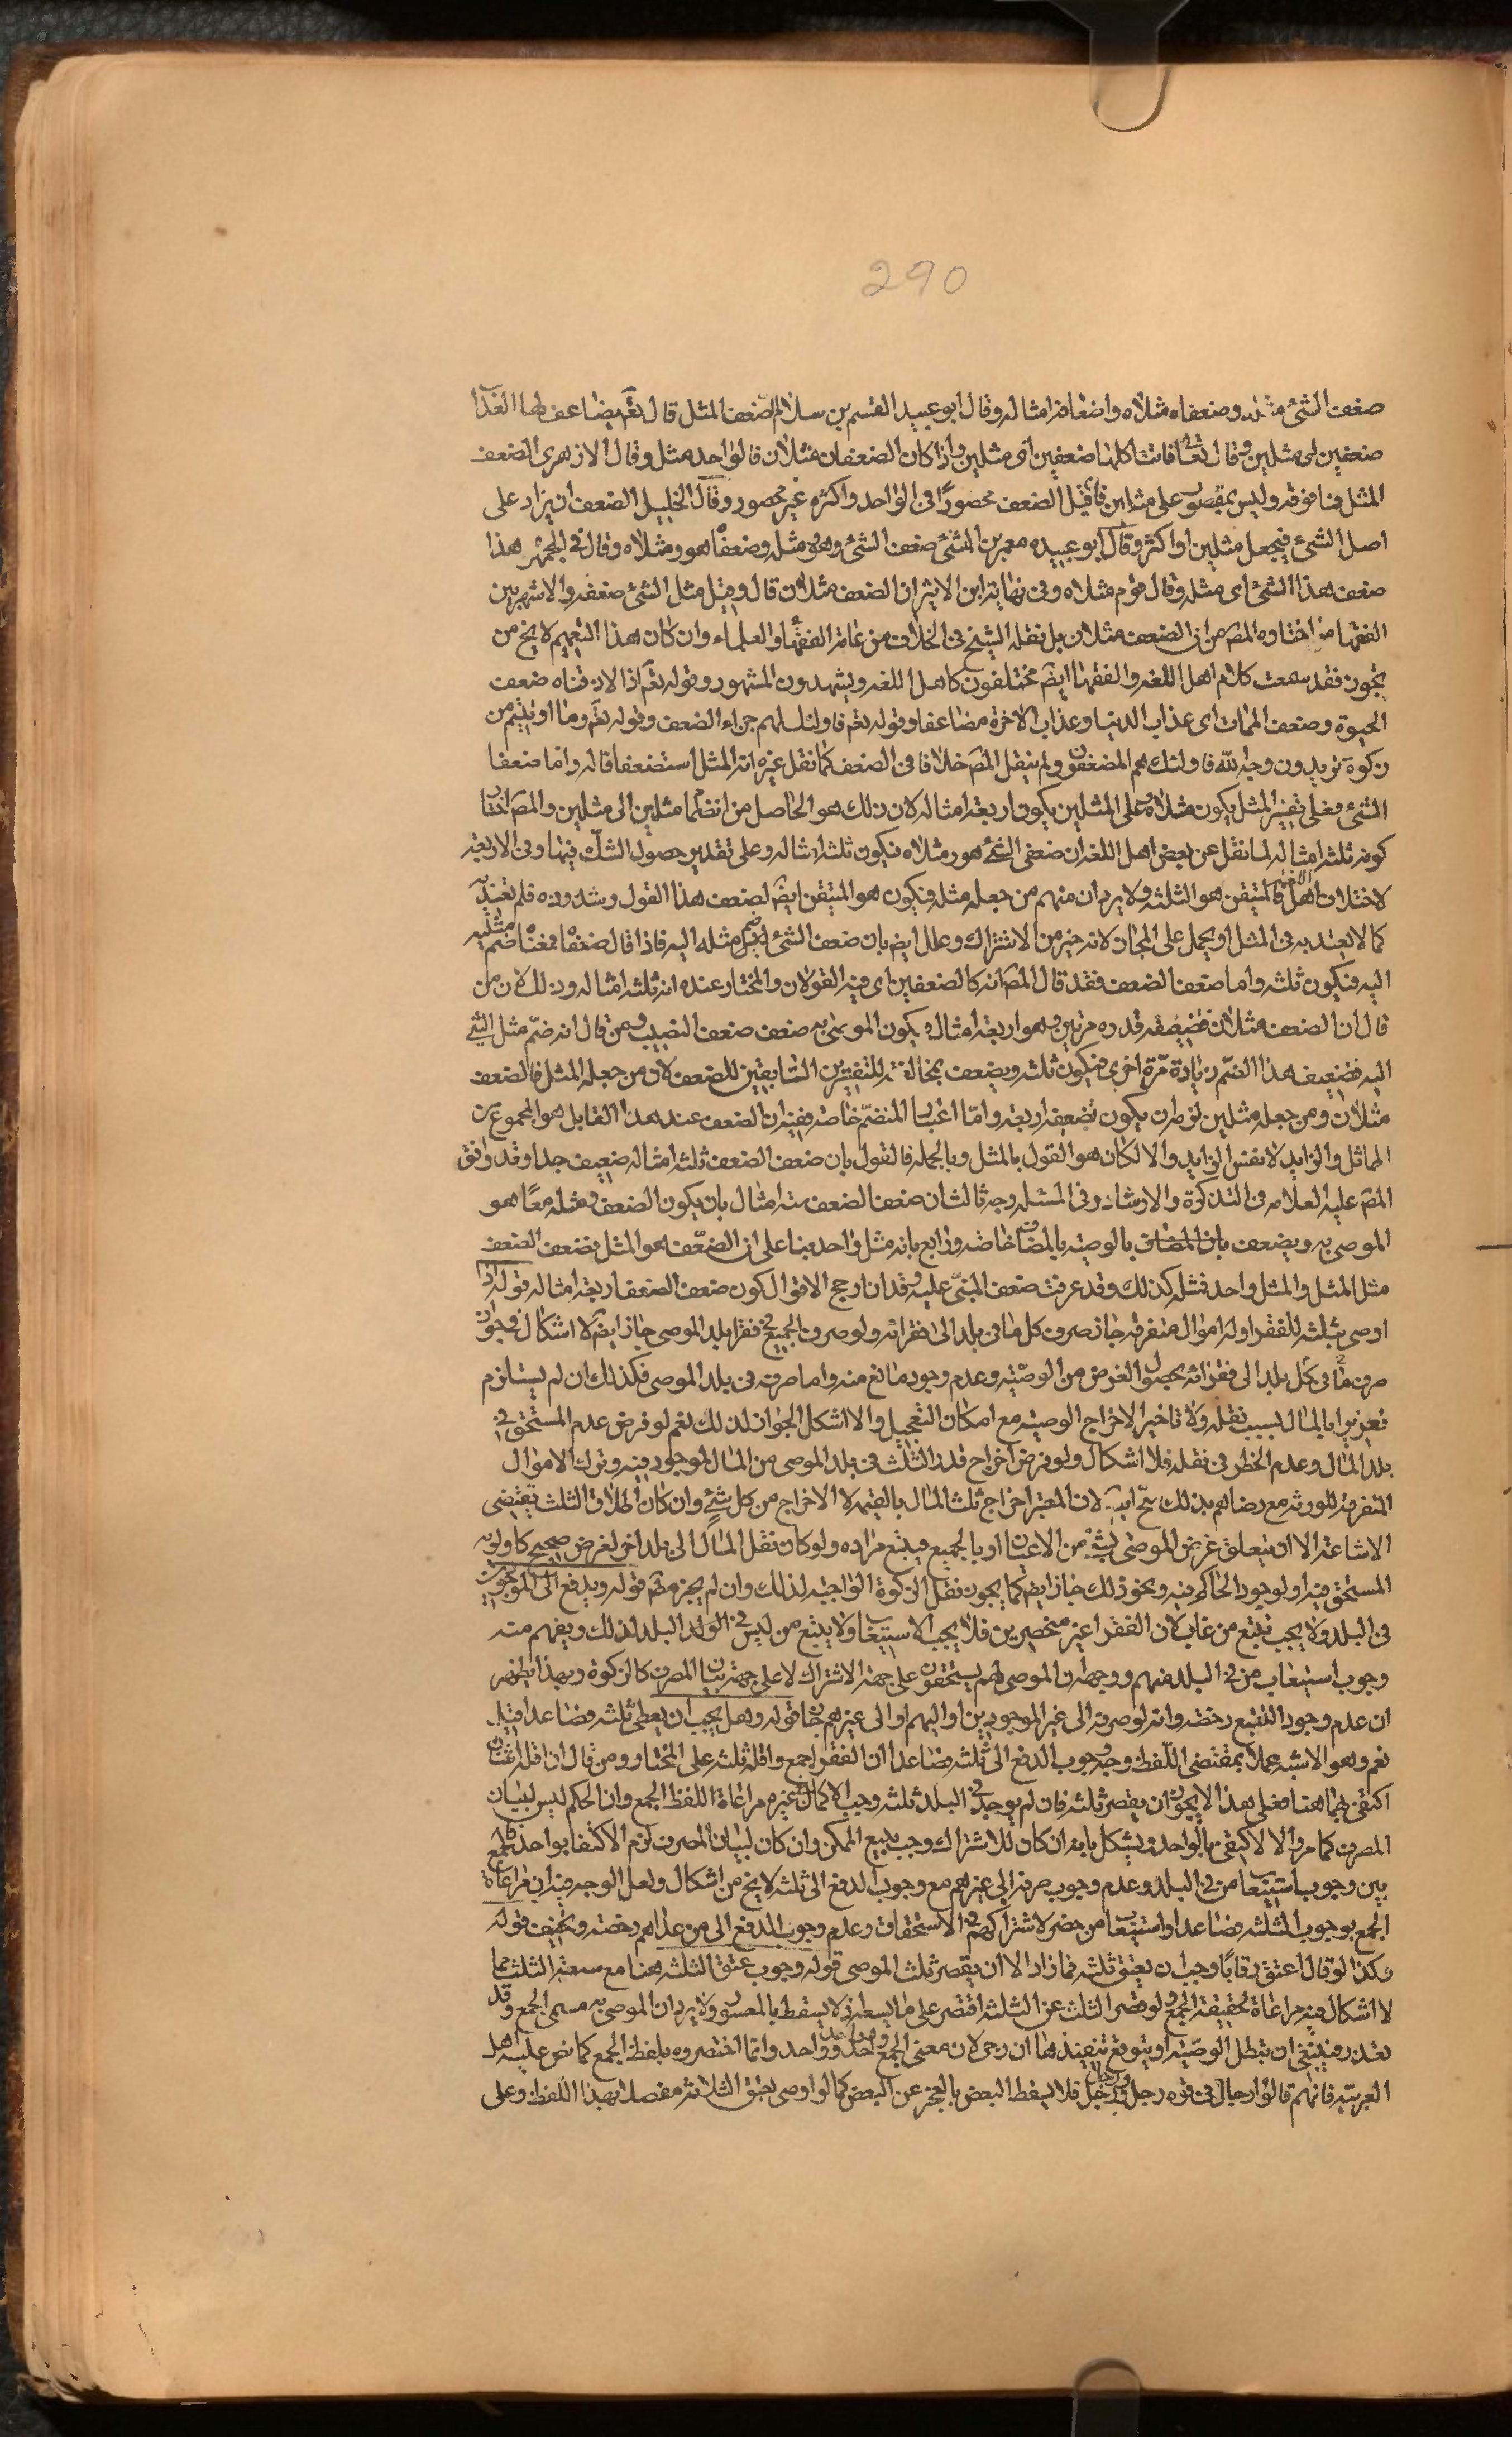 290
ضعف الشئ مثله وضعفاه مثلاه واضعافه امثاله وقال ابو عبيد القسم بن سلام الضعف المثل قال تعه يضاعف لها العذاب
ضعفين اى مثلين وقال تعا فاتت اكلها ضعفين اى مثلين واذا كان الضعفان مثلان فالواحد مثل وقال الازهرى الضعف
المثل فما فوقه وليس بمقصور على مثلين فاقل الضعف محصورًا فى الواحد واكثره غير محصور وقال الخليل الضعف ان يزاد على
اصل الشئ فيجعل مثلين او اكثر وقال ابو عبيده معمر بن المثنى ضعف الشئ وهو مثله وضعفاه هو ومثلاه وقال فى الجمهره هذا
ضعف هذا الشئ اى مثله وقال قوم مثلاه وفى نهاية ابن الاثير ان الضعف مثلان قال وقيل مثل الشئ ضعفه والاشهر بين
الفقها ما اختاره المصَ من ان الضعف مثلان بل نقله الشيخ فى الخلاف من عامة الفقهاء والعلماء وان كان هذا التعميم لا يخ من
تجوز فقد سمعت كلام اهل اللغه والفقها ايضَ مختلفون كاهل اللغه ويشهدون المشهور وقوله تعه اذا لاذقناه ضعف
الحيوة وضعف الممات اى عذاب الدنيا وعذاب الاخرة مضاعفا وقوله تعه فاولئك لهم جزاء الضعف وقوله تعه وما اوتيتم من
زكوة تريدون وجه الله فاولئك هم المضعفون ولم ينقل المصَ خلافا فى الضعف كما نقل غيره انه المثل استضعفا قاله واما ضعفا
الشئ فعلى تفسير المثل يكون مثلاه وعلى المثلين يكون اربعة امثاله لان ذلك هو الحاصل من انضمام مثلين الى مثلين والمصَ اختار
كونه ثلثة امثاله لما نقل عن بعض اهل اللغه ان ضعفى الشئ هو ومثلاه فيكون ثلثة امثاله وعلى تقدير حصول الشك فيها وفى الاربعة
لاختلاف اهل اللغه فالمتيقن هو الثلثه ولا يرد ان منهم من جعله مثله فيكون هو المتيقن ايضَ لضعف هذا القول وشذوذه فلم يعتد به
كما لا يعتد به فى المثل او يحمل على المجاز لانه خير من الاشتراك وعلل ايضَ بان ضعف الشئ ضم مثله اليه فاذا قال ضعفاه فمعناه ضم مثليه
اليه فيكون ثلثه واما ضعف الضعف فقد قال المصَ انه كالضعفين اى فيه القولان والمختار عنده انه ثلثة امثاله وذلك لان من
قال ان الضعف مثلان فتضعيفه قدره مرتين وهو اربعة امثال ويكون الموصى به ضعف ضعف النصيب ومن قال انه ضم مثل الشئ
اليه فتضعيف هذا الضم زيادة مرّة اخرى فيكون ثلثه ويضعف بمخالفته للتفسيرين السابقين للضعف لان من جعله المثل فالضعف
مثلان ومن جعله مثلين لزمه ان يكون تضعيفه اربعه وامّا اعتبار المنضمّ خاصة ففيه ان الضعف عند هذا القايل هو المجموع من
المماثل والزايد لا نفس الزايد والا لكان هو القول بالمثل وبالجمله فالقول بان ضعف الضعف ثلثة امثاله ضعيف جدا وقد وافق
المصَ عليه العلامه فى التذكرة والارشاد وفى المسئله وجه ثالث ان ضعف الضعف ستة امثال بان يكون الضعف ومثله معًا هو
الموصى به ويضعف بان المضاف بالوصيه بالمضاف خاصه ورابع بانه مثل واحد بناء على ان الضعف هو المثل فضعف الضعف
مثل المثل والمثل واحد فمثله كذلك وقد عرفت ضعف المبنى عليه وقد ان ارجح الاقوال كون ضعف الضعف اربعة امثاله قوله اذا
اوصى بثلثه للفقراء وله اموال متفرقه جاز صرف كل ما فى بلد الى فقرائه ولو صرف الجميع فى فقرا بلد الموصى جاز ايضَ لا اشكال فى جواز
صرف ما فى كل بلد الى فقرائه لحصول الغرض من الوصيّه وعدم وجود مانع منه واما صرفه فى بلد الموصى فكذلك ان لم يستلزم
تغريرا بالمال بسبب نقله ولا تاخير الاخراج الوصيه مع امكان التعجيل والا اشكل الجواز لذلك نعم لو فرض عدم المستحق فى
بلد المال وعدم الخطر فى نقله فلا اشكال ولو فرض اخراج قدر الثلث فى بلد الموصى من المال الموجود فيه وترك الاموال
المتفرقه للورثه مع رضاهم بذلك صح ايضَ لان المعتبر اخراج ثلث المال بالقيمه لا الاخراج من كل شئ وان كان اطلاق الثلث يقتضى
الاشاعة الا ان يتعلق غرض الموصى بشئ من الاعيان او بالجميع فيتبع مراده ولو كان نقل المال الى بلد اخر لغرض صحيح كاولويه
المستحق فيه او لوجود الحاكم فيه ونحو ذلك جاز ايضَ كما يجوز نقل الزكوة الواجبه لذلك وان لم يجز مطَ قوله ويدفع الى الموجودين
فى البلد ولا يجب تتبع من غاب لان الفقرا غير منحصرين فلا يجب الاستيعاب ولا يتتبع من ليس فى البلد لذلك ويفهم منه
وجوب استيعاب من فى البلد منهم ووجهه ان الموصى لهم يستحقون على جهة الاشتراك لا على جهة بيان المصرف كالزكوة وبهذا يظهر
ان عدم وجود التتبع رخصه وانه لو صرفه الى غير الموجودين او اليهم او الى غيرهم جاز قوله وهل يجب ان يعطى ثلثه فصاعدا قيل
نعم وهو الاشبه عملا بمقتضى اللّفظ وجه وجوب الدفع الى ثلثه فصاعدا ان الفقرا جمع واقله ثلثه على المختار ومن قال ان اقله اثنان
اكتفى بهما هنا فعلى هذا لا يجوز ان يقصر ثلثه فان لم يوجد فى البلد ثلثه وجب الاكمال من غيره مراعاة اللفظ الجمع وان الحكم ليس لبيان
المصرف كما مر والا لاكتفى بالواحد ويشكل بانه ان كان للاشتراك وجب تتبع الممكن وان كان لبيان المصرف لزم الاكتفا بواحد فالجمع
بين وجوب استيعاب من فى البلد وعدم وجوب صرفه الى غيرهم مع وجوب الدفع الى ثلثه لا يخ من اشكال ولعل الوجه فيه ان مراعاة
الجمع بوجوب الثلثه فصاعدا واستيعاب من حضر لاشتراكهم فى الاستحقاق وعدم وجوب الدفع الى من عداهم رخصه وتخفيف قوله
وكذا لو قال اعتق رقابًا وجب ان يعتق ثلثه فما زاد الا ان يقصر ثلث الموصى قوله وجوب عتق الثلثه هنا مع سعة الثلث مما
لا اشكال فيه مراعاة لحقيقة الجمع ولو قصر الثلث عن الثلثه اقتصر على ما يسعه اذ لا يسقط بالمعسور ولا يرد ان الموصى به مسمى الجمع وقد
تعذر فينبغى ان تبطل الوصيّه او يتوقع تنفيذها ان رجى لان معنى الجمع واحد وواحد وواحد وانما اختصروه بلفظ الجمع كما نص عليه اهل
العربيّه فانهم قالوا رجال فى قوة رجل ورجل ورجل فلا يسقط البعض بالعجز عن البعض كما لو اوصى بعتق الثلاثه مفصلا بهذا اللفظ وعلى